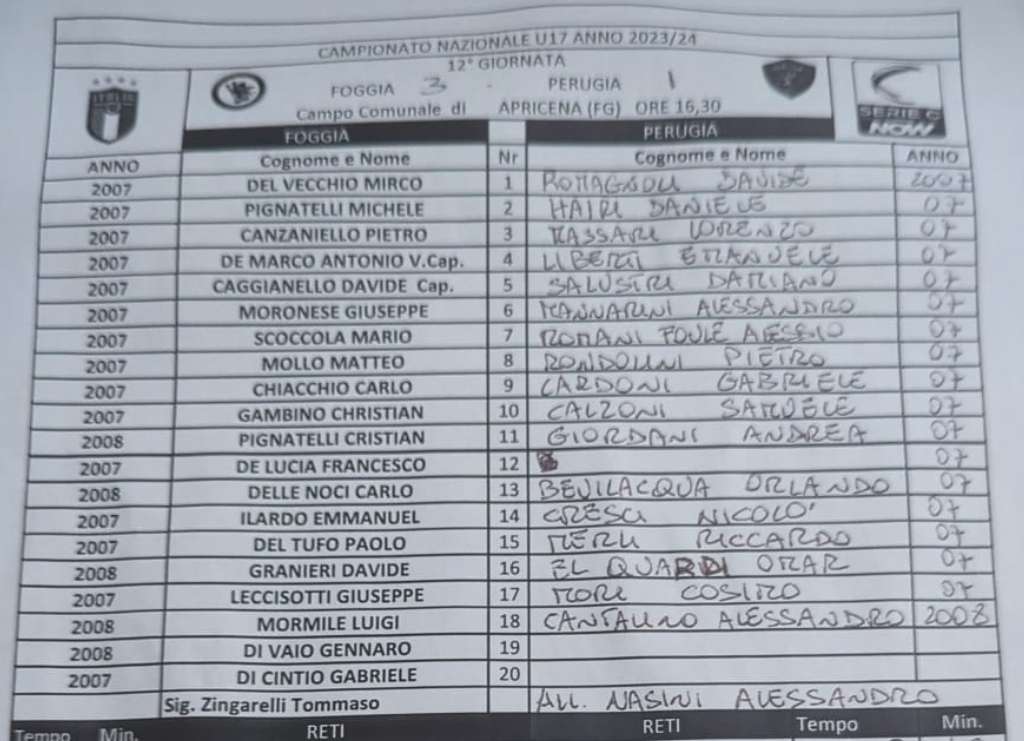 CAMPIONATO NAZIONALE U17 ANNO 2023/24
12° GIORNATA
FOGGIA 3 - PERUGIA 1
Campo Comunale di APRICENA (FG) ORE 16,30
ITALIA
SERIE C
NOW
FOGGIA PERUGIA
ANNO Cognome e Nome Nr Cognome e Nome ANNO
2007 DEL VECCHIO MIRCO 1 ROMAGNOLI DAVIDE 2007
2007 PIGNATELLI MICHELE 2 HAIRI DANIELE 07
2007 CANZANIELLO PIETRO 3 MASSARI LORENZO 07
2007 DE MARCO ANTONIO V.Cap. 4 LIBERTI EMANUELE 07
2007 CAGGIANELLO DAVIDE Cap. 5 SALUSTRI DAMIANO 07
2007 MORONESE GIUSEPPE 6 MANNARINI ALESSANDRO 07
2007 SCOCCOLA MARIO 7 ROMANI ALESSIO 07
2007 MOLLO MATTEO 8 RONDOLINI PIETRO 07
2007 CHIACCHIO CARLO 9 CARDONI GABRIELE 07
2007 GAMBINO CHRISTIAN 10 CALZONI SAMUELE 07
2008 PIGNATELLI CRISTIAN 11 GIORDANI ANDREA 07
2007 DE LUCIA FRANCESCO 12 07
2008 DELLE NOCI CARLO 13 BEVILACQUA ORLANDO 07
2007 ILARDO EMMANUEL 14 CRESCI NICOLO' 07
2007 DEL TUFO PAOLO 15 MERLI RICCARDO 07
2008 GRANIERI DAVIDE 16 EL QUARDI OMAR 07
2007 LECCISOTTI GIUSEPPE 17 MORI COSIMO 07
2008 MORMILE LUIGI 18 CANTALINO ALESSANDRO 2008
2008 DI VAIO GENNARO 19
2007 DI CINTIO GABRIELE 20
Sig. Zingarelli Tommaso ALL. NASINI ALESSANDRO
Tempo Min. RETI RETI Tempo Min.